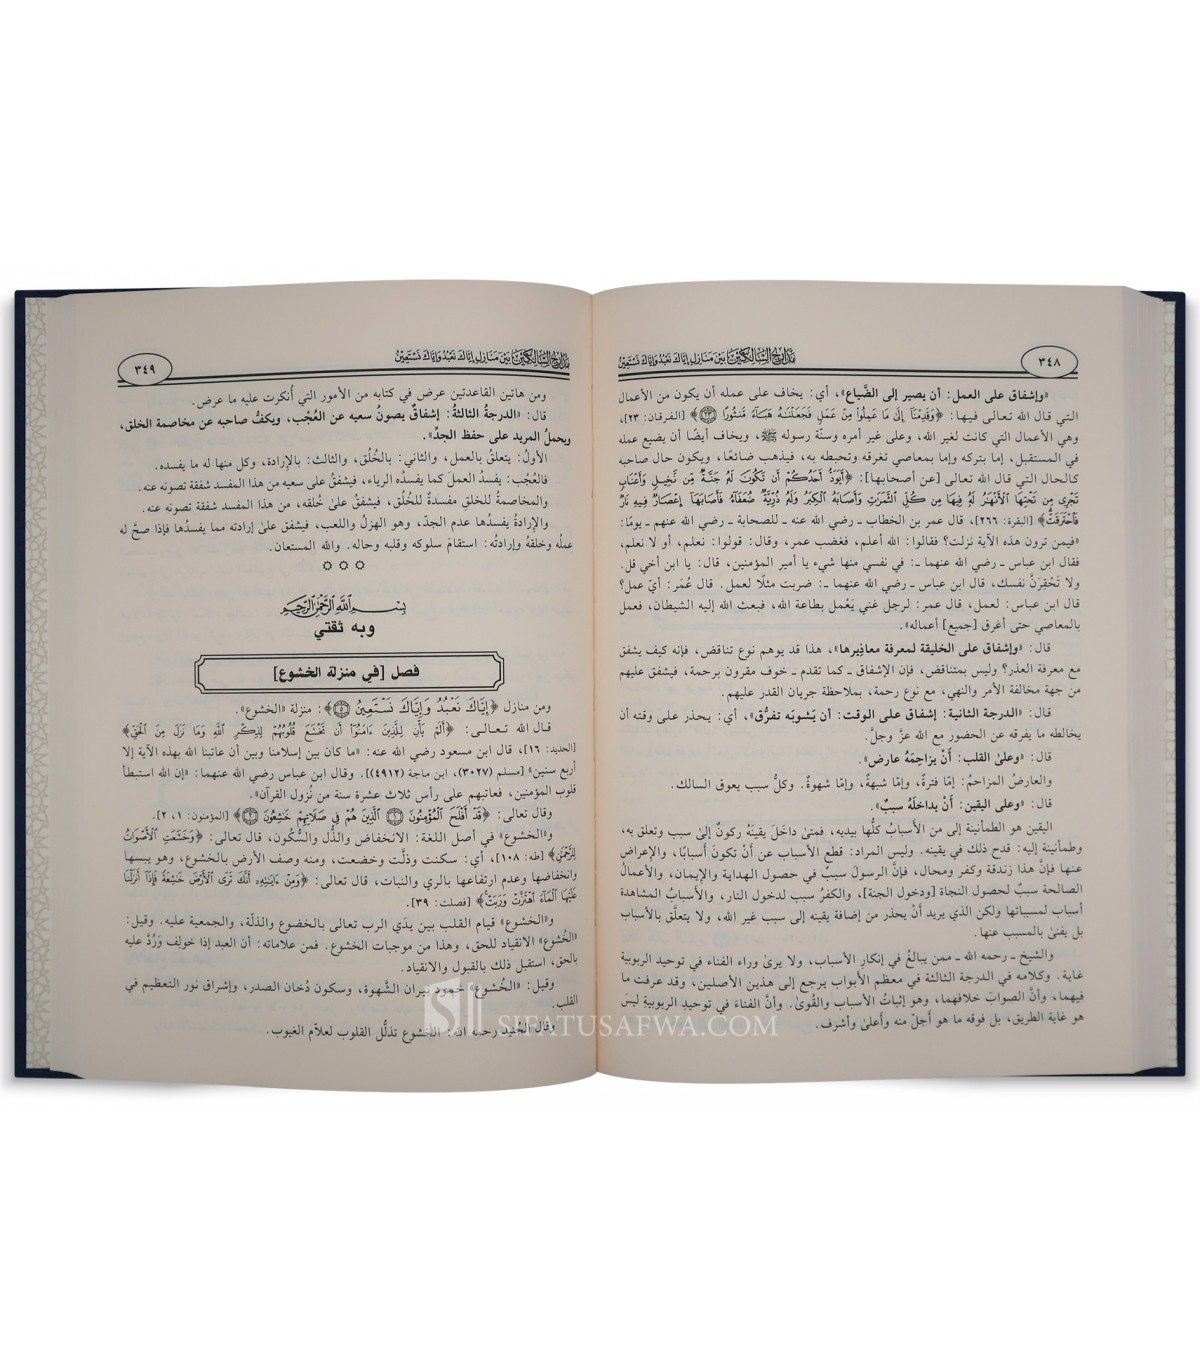 ٣٤٨
مدارج السالكين بين منازل إياك نعبد وإياك نستعين
«وإشفاق على العمل: أن يصير إلى الضَّياع»، أي: يخاف على عمله أن يكون من الأعمال
التي قال الله تعالى فيها: ﴿وَقَدِمْنَآ إِلَىٰ مَا عَمِلُوا۟ مِنْ عَمَلٍ فَجَعَلْنَٰهُ هَبَآءً مَّنثُورًا ٢٣﴾ [الفرقان: ٢٣]،
وهي الأعمال التي كانت لغير الله، وعلى غير أمره وسنّة رسوله ﷺ، ويخاف أيضًا أن يضيع عمله
في المستقبل، إما بتركه وإما بمعاصي تغرقه وتحبطه به، فيذهب ضائعًا، ويكون حال صاحبه
كالحال التي قال الله تعالى [عن أصحابها]: ﴿أَيَوَدُّ أَحَدُكُمْ أَن تَكُونَ لَهُۥ جَنَّةٌ مِّن نَّخِيلٍ وَأَعْنَابٍ
تَجْرِى مِن تَحْتِهَا ٱلْأَنْهَٰرُ لَهُۥ فِيهَا مِن كُلِّ ٱلثَّمَرَٰتِ وَأَصَابَهُ ٱلْكِبَرُ وَلَهُۥ ذُرِّيَّةٌ ضُعَفَآءُ فَأَصَابَهَآ إِعْصَارٌ فِيهِ نَارٌ
فَٱحْتَرَقَتْ﴾ [البقرة: ٢٦٦]، قال عمر بن الخطاب ـ رضي الله عنه ـ للصحابة ـ رضي الله عنهم ـ يومًا:
«فيمن ترون هذه الآية نزلت؟ فقالوا: الله أعلم، فغضب عمر، وقال: قولوا: نعلم، أو لا نعلم،
فقال ابن عباس ـ رضي الله عنهما ـ: في نفسي منها شيء يا أمير المؤمنين، قال: يا ابن أخي قل.
ولا تَحْقِرَنَّ نفسك، قال ابن عباس ـ رضي الله عنهما ـ: ضربت مثلًا لعمل. قال عُمَر: أيّ عمل؟
قال ابن عباس: لعمل، قال عمر: لرجل غني يَعْمل بطاعة الله، فبعث الله إليه الشيطان، فعمل
بالمعاصي حتى أغرق [جميع] أعماله».
قال: «وإشفاق على الخليقة لمعرفة معاذِيرها»، هذا قد يوهم نوع تناقض، فإنه كيف يشفق
مع معرفة العذر؟ وليس بمتناقض، فإن الإشفاق ـ كما تقدم ـ خوف مقرون برحمة، فيشفق عليهم
من جهة مخالفة الأمر والنهي، مع نوع رحمة، بملاحظة جريان القدر عليهم.
قال: «الدرجة الثانية: إشفاق على الوقت: أن يَشوبَه تفرُّق»، أي: يحذر على وقته أن
يخالطه ما يفرقه عن الحضور مع الله عزَّ وجلَّ.
قال: «وعلىٰ القلب: أنْ يزاحِمَهُ عارض».
والعارضُ المزاحم: إمّا فترةٌ، وإمّا شبهةٌ، وإمّا شهوةٌ. وكلُّ سبب يعوق السالك.
قال: «وعلى اليقين: أنْ يداخلَهُ سببٌ».
اليقين هو الطمأنينة إلى من الأسبابُ كلُّها بيديه، فمتىٰ داخلَ يقينَهُ ركونٌ إلىٰ سبب وتعلق به،
وطمأنينة إليه: قدح ذلك في يقينه. وليس المراد: قطع الأسباب عن أنْ تكونَ أسبابًا، والإعراض
عنها فإنَّ هذا زندقة وكفر ومحال، فإنَّ الرسولَ سببٌ في حصول الهداية والإيمان، والأعمالُ
الصالحة سببٌ لحصول النجاة [ودخول الجنة]، والكفرُ سبب لدخول النار، والأسبابُ المشاهدة
أسباب لمسبباتها ولكن الذي يريد أنْ يحذر من إضافة يقينه إلى سبب غير الله، ولا يتعلّق بالأسباب
بل يفنىٰ بالمسبب عنها.
والشيخ ـ رحمه الله ـ ممن يبالغُ في إنكارِ الأسباب، ولا يرىٰ وراء الفناء في توحيد الربوبية
غاية. وكلامه في الدرجة الثالثة في معظم الأبواب يرجع إلى هذين الأصلين، وقد عرفت ما
فيهما، وأنَّ الصوابَ خلافهما، وهو إثباتُ الأسباب والقُوىٰ. وأنَّ الفناءَ في توحيدِ الربوبية ليسَ
هو غاية الطريق، بل فوقه ما هو أجلّ منه وأعلىٰ وأشرف.
مدارج السالكين بين منازل إياك نعبد وإياك نستعين
٣٤٩
ومن هاتين القاعدتين عرض في كتابه من الأمور التي أُنكرت عليه ما عرض.
قال: «الدرجةُ الثالثةُ: إشفاقٌ يصونُ سعيه عن العُجْب، ويكفُّ صاحبه عن مخاصمة الخلق،
ويحملُ المريد على حفظ الجدِّ».
الأولُ: يتعلقُ بالعمل، والثاني: بالخُلُق، والثالث: بالإرادة، وكل منها له ما يفسده.
فالعُجْب: يفسدُ العملَ كما يفسدُه الرياء، فيشفقُ على سعيه من هذا المفسد شفقة تصونه عنه.
والمخاصمة للخلقِ مفسدةٌ للخُلُق، فيشفقُ علىٰ خُلقه، من هذا المفسد شفقة تصونه عنه.
والإرادةُ يفسدُها عدم الجدّ، وهو الهزلُ واللعب، فيشفق علىٰ إرادته مما يفسدُها فإذا صحَّ له
عملُه وخلقهُ وإرادتُه: استقامَ سلوكه وقلبه وحاله. والله المستعان.
بسم الله الرحمن الرحيم
وبه ثقتي
فصل [في منزلة الخشوع]
ومن منازل ﴿إِيَّاكَ نَعْبُدُ وَإِيَّاكَ نَسْتَعِينُ ٥﴾: منزلة «الخشوع».
قـال الله تـعـالـى: ﴿أَلَمْ يَأْنِ لِلَّذِينَ ءَامَنُوٓا۟ أَن تَخْشَعَ قُلُوبُهُمْ لِذِكْرِ ٱللَّهِ وَمَا نَزَلَ مِنَ ٱلْحَقِّ﴾
[الحديد: ١٦]، قال ابن مسعود رضي الله عنه: «ما كان بين إسلامنا وبين أن عاتبنا الله بهذه الآية إلا
أربع سنين» [مسلم (٣٠٢٧)، ابن ماجة (٤٩١٢)]. وقال ابن عباس رضي الله عنهما: «إن الله استبطأ
قلوب المؤمنين، فعاتبهم على رأس ثلاث عشرة سنة من نُزول القرآن».
وقال تعالى: ﴿قَدْ أَفْلَحَ ٱلْمُؤْمِنُونَ ١ ٱلَّذِينَ هُمْ فِى صَلَاتِهِمْ خَٰشِعُونَ ٢﴾ [المؤمنون: ١، ٢].
و«الخشوع» في أصل اللغة: الانخفاض والذُّل والسُّكون، قال تعالى: ﴿وَخَشَعَتِ ٱلْأَصْوَاتُ
لِلرَّحْمَٰنِ﴾ [طه: ١٠٨]، أي: سكنت وذلَّت وخضعت، ومنه وصف الأرض بالخشوع، وهو يبسها
وانخفاضها وعدم ارتفاعها بالري والنبات، قال تعالى: ﴿وَمِنْ ءَايَٰتِهِۦٓ أَنَّكَ تَرَى ٱلْأَرْضَ خَٰشِعَةً فَإِذَآ أَنزَلْنَا
عَلَيْهَا ٱلْمَآءَ ٱهْتَزَّتْ وَرَبَتْ﴾ [فصلت: ٣٩].
و«الخشوع» قيام القلب بين يدَي الرب تعالى بالخضوع والذلّة، والجمعية عليه. وقيل:
«الخُشوع» الانقياد للحق، وهذا من موجبات الخشوع. فمن علاماته: أن العبد إذا خولِف وَرُدَّ عليه
بالحق، استقبل ذلك بالقبول والانقياد.
وقيل: «الخُشوع» خمود نيران الشَّهوة، وسكون دُخان الصدر، وإشراق نور التعظيم في
القلب.
وقال الجُنيد رحمه الله: الخشوع تذلُّل القلوب لعلاّم الغيوب.
SIFATUSAFWA.COM